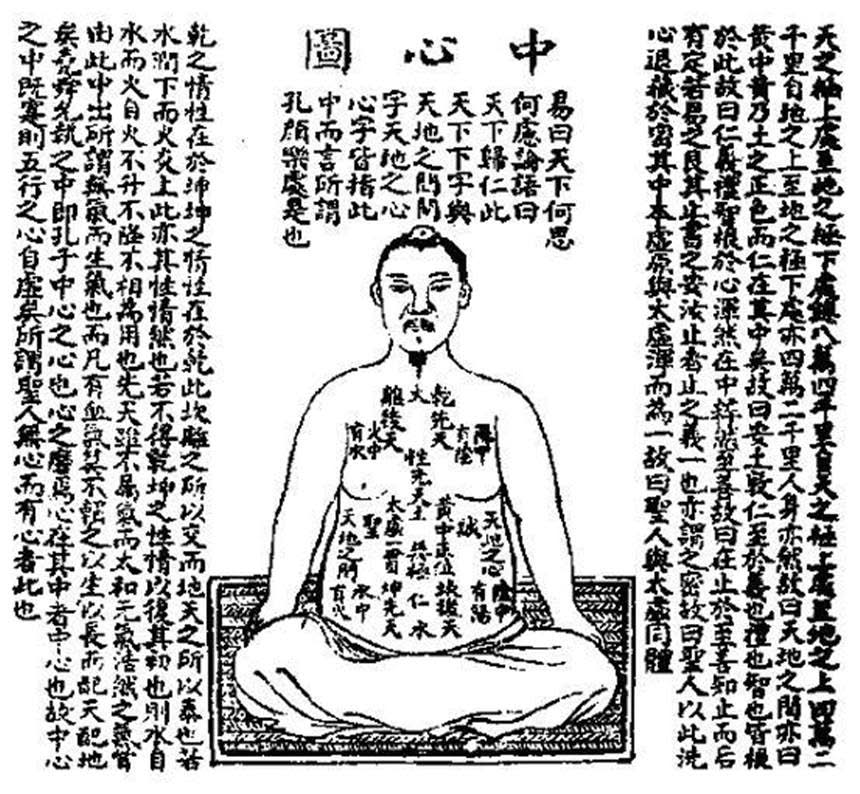 中心圖
天之極上處至地之極下處八萬四千里自天之極上處至地之上四萬二
千里自地之上至地之極下處亦四萬二千里人身亦然故曰天地之間亦曰
黃中黃乃土之正色而仁在其中矣故曰安土敦仁至於義也禮也智也皆根
於此故曰仁義禮智根於心渾然在中粹然至善故曰在止於至善知止而后
有定若易之艮其止書之安汝止者止之義一也亦謂之密故曰聖人以此洗
心退藏於密其中本虛原與太虛渾而為一故曰聖人與太虛同體
易曰天下何思
何慮論語曰
天下歸仁此
天下下字與
天地之間間
字天地之心
心字皆指此
中而言所謂
孔顏樂處是也
陽中
有陰
乾先天
火
離後天
火中
有水
性先天土
天地之心
黃中正位
太虛一竅
聖
天地之間
陰中
有陽
坎後天
仁
水
坤先天
水中
有火
乾之情性在於坤坤之情性在於乾此坎離之所以交而地天之所以泰也若
水潤下而火炎上此亦其性情然也若不得乾坤之性情以復其初也則水自
水而火自火不升不降不相為用也先天雖不屬氣而太和元氣浩然之氣皆
由此中出所謂無氣而生氣也而凡有血氣莫不賴之以生以長而配天配地
矣堯舜允執之中即孔子中心之心也心之為心在其中者中心也故中心
之中既寔則五行之心自虛矣所謂聖人無心而有心者此也